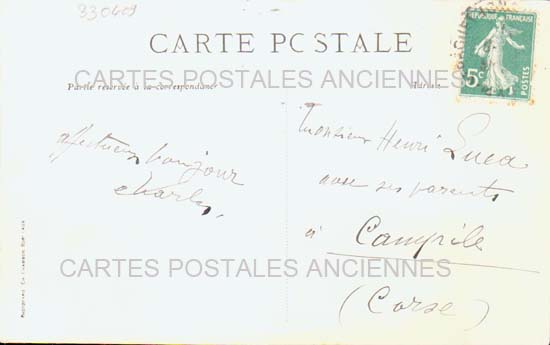 330409
CARTE POSTALE
RÉPUBLIQUE FRANÇAISE
5c
CARTES POSTALES ANCIENNES
Partie réservée à la correspondance
affectueux bonjour
Charles,
Monsieur Henri Luca
avec ses parents
à Campile
(Corse)
CARTES POSTALES ANCIENNES